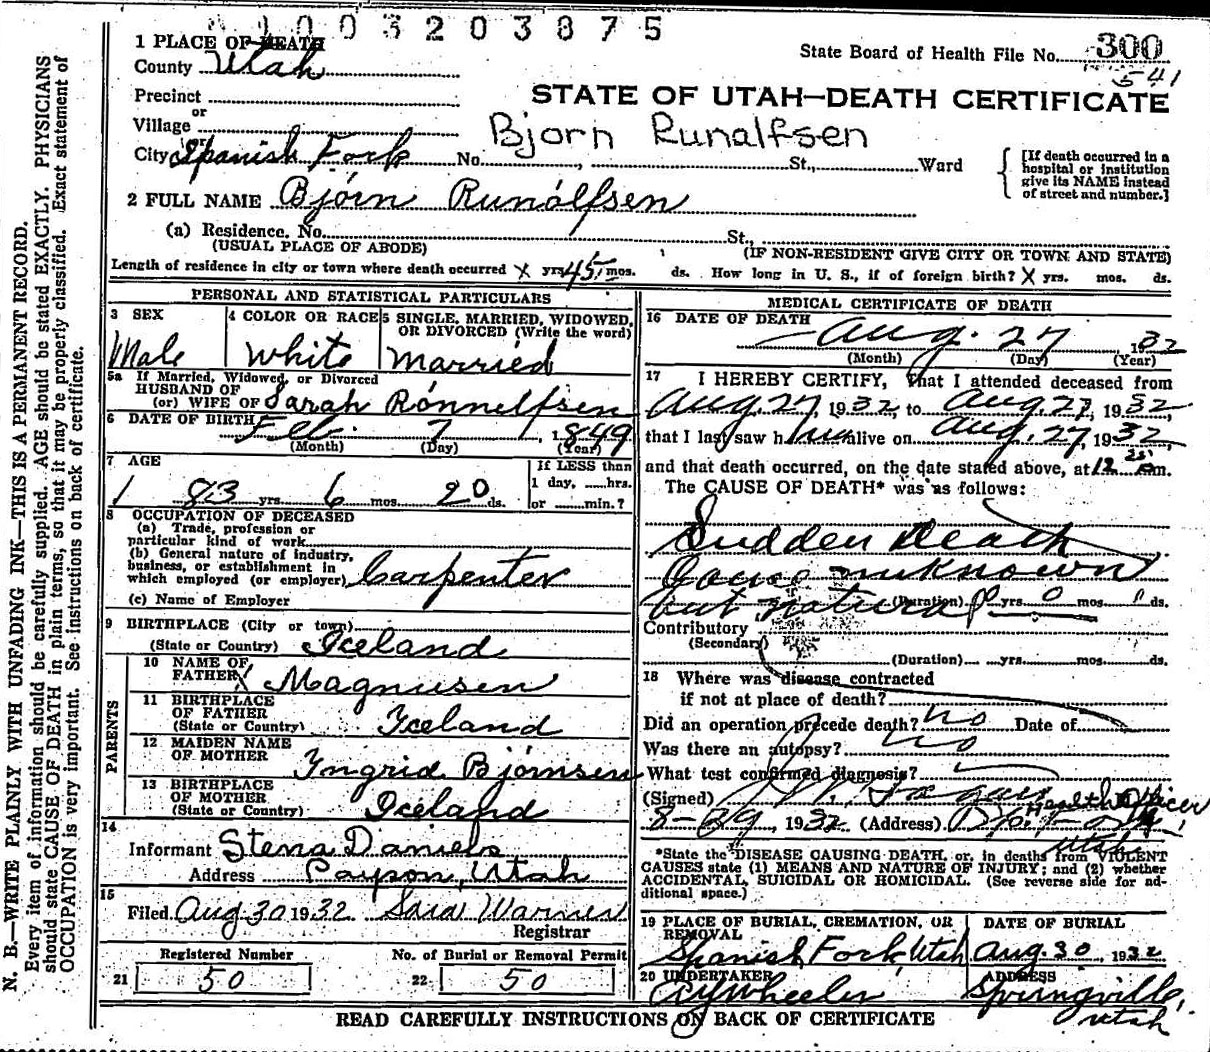 1003203875
State Board of Health File No. 300
541
STATE OF UTAH—DEATH CERTIFICATE
1 PLACE OF DEATH
County Utah
Precinct
or
Village
or
City Spanish Fork No. St., Ward
Bjorn Runalfsen
[If death occurred in a hospital or institution give its NAME instead of street and number.]
2 FULL NAME Bjórn Runólfsen
(a) Residence. No. St.,
(USUAL PLACE OF ABODE) (IF NON-RESIDENT GIVE CITY OR TOWN AND STATE)
Length of residence in city or town where death occurred X yrs. 45 mos. ds. How long in U. S., if of foreign birth? X yrs. mos. ds.
PERSONAL AND STATISTICAL PARTICULARS
3 SEX
Male
4 COLOR OR RACE
White
5 SINGLE, MARRIED, WIDOWED, OR DIVORCED (Write the word)
Married
5a If Married, Widowed, or Divorced
HUSBAND OF
(or) WIFE OF Sarah Rónnelfsen
6 DATE OF BIRTH Feb. 7, 1849
(Month) (Day) (Year)
7 AGE
83 yrs. 6 mos. 20 ds.
If LESS than
1 day, hrs.
or min.?
8 OCCUPATION OF DECEASED
(a) Trade, profession or
particular kind of work
(b) General nature of industry,
business, or establishment in
which employed (or employer) Carpenter
(c) Name of Employer
9 BIRTHPLACE (City or town)
(State or Country) Iceland
PARENTS
10 NAME OF
FATHER X Magnusen
11 BIRTHPLACE
OF FATHER
(State or Country) Iceland
12 MAIDEN NAME
OF MOTHER Ingrid Bjórnsen
13 BIRTHPLACE
OF MOTHER
(State or Country) Iceland
14
Informant Stena Daniels
Address Payson, Utah
15
Filed Aug 30 1932 Warner
Registrar
Registered Number
21 50
No. of Burial or Removal Permit
22 50
MEDICAL CERTIFICATE OF DEATH
16 DATE OF DEATH
Aug. 27 1932
(Month) (Day) (Year)
17 I HEREBY CERTIFY, That I attended deceased from
Aug. 27, 1932, to Aug. 27, 1932,
that I last saw him alive on Aug. 27, 1932,
and that death occurred, on the date stated above, at 12 m.
The CAUSE OF DEATH* was as follows:
Sudden Death
Cause unknown
but natural (Duration) 0 yrs. 0 mos. ds.
Contributory
(Secondary)
(Duration) yrs. mos. ds.
18 Where was disease contracted
if not at place of death?
Did an operation precede death? no Date of
Was there an autopsy? no
What test confirmed diagnosis?
(Signed) Health Officer
8-29, 1932 (Address) Sp. Fork, Utah
*State the DISEASE CAUSING DEATH, or, in deaths from VIOLENT
CAUSES state (1) MEANS AND NATURE OF INJURY; and (2) whether
ACCIDENTAL, SUICIDAL OR HOMICIDAL. (See reverse side for ad-
ditional space.)
19 PLACE OF BURIAL, CREMATION, OR
REMOVAL
Spanish Fork, Utah
DATE OF BURIAL
Aug. 30, 1932
20 UNDERTAKER
Wheeler
ADDRESS
Springville, Utah
READ CAREFULLY INSTRUCTIONS ON BACK OF CERTIFICATE
N. B.—WRITE PLAINLY WITH UNFADING INK—THIS IS A PERMANENT RECORD.
Every item of information should be carefully supplied. AGE should be stated EXACTLY. PHYSICIANS
should state CAUSE OF DEATH in plain terms, so that it may be properly classified. Exact statement of
OCCUPATION is very important. See instructions on back of certificate.